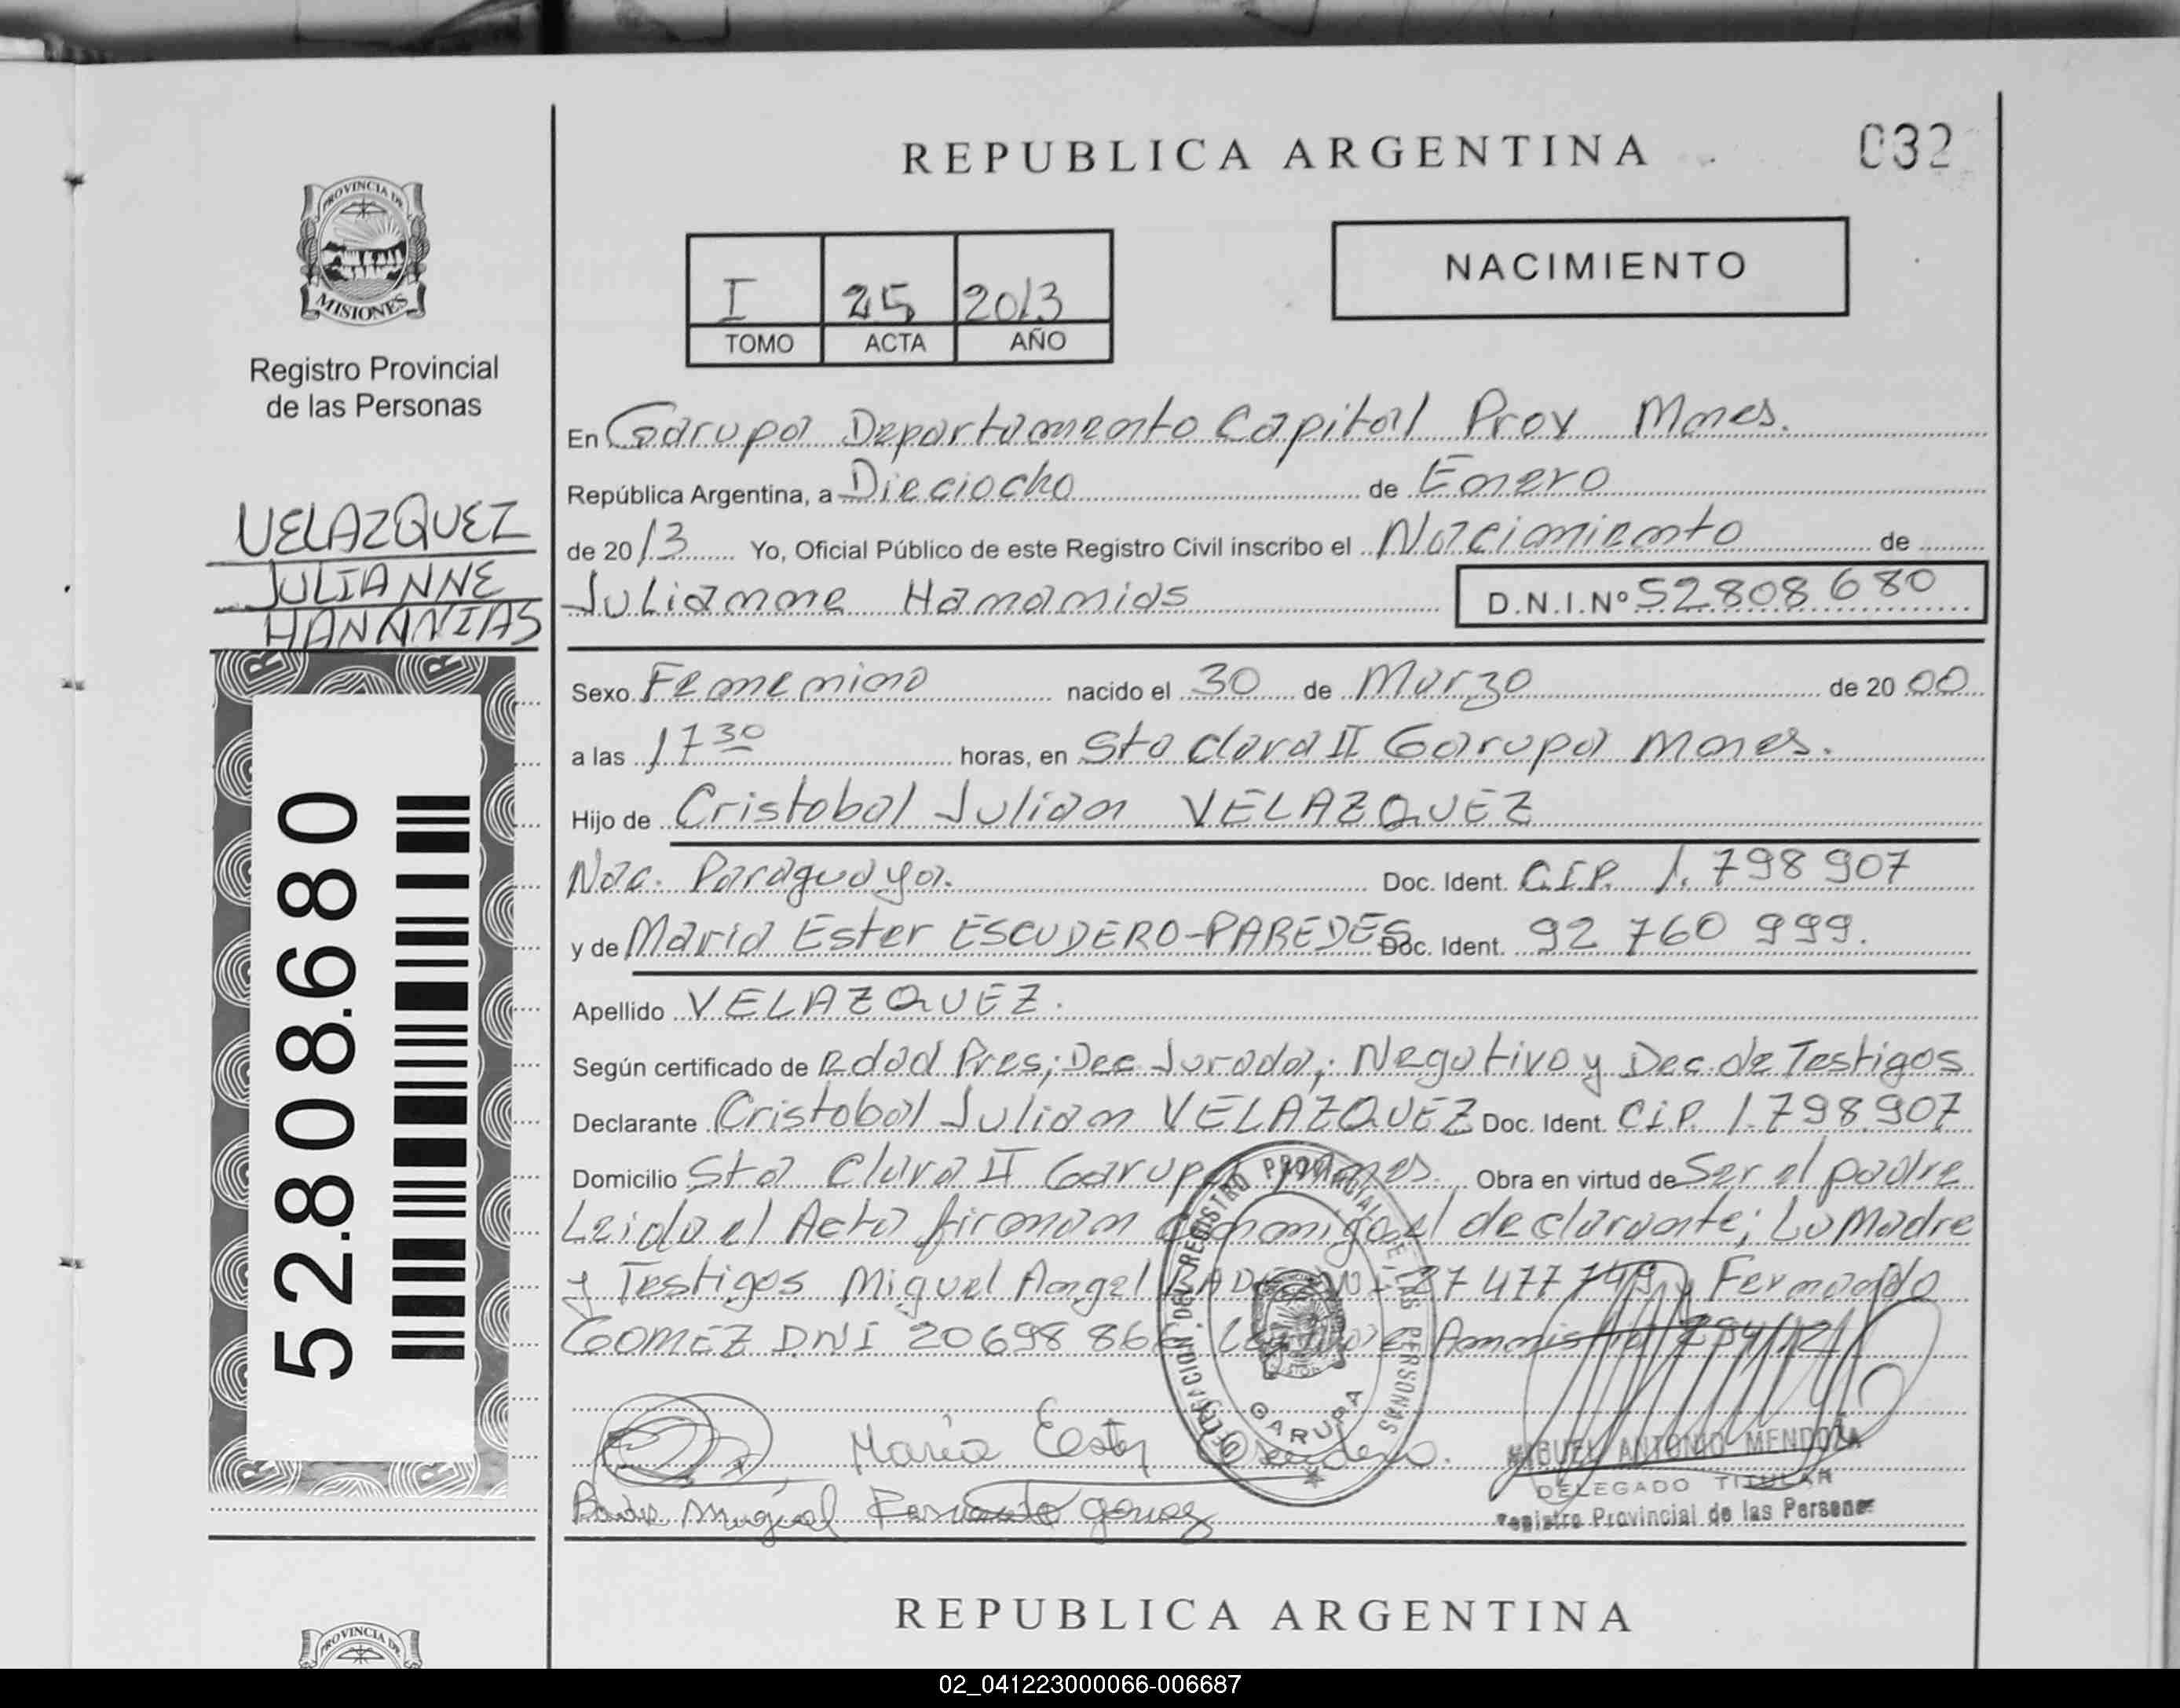 REPUBLICA ARGENTINA
032
PROVINCIA DE
MISIONES
Registro Provincial
de las Personas
VELAZQUEZ
JULIANNE
HANANIAS
52.808.680
I 25 2013
TOMO ACTA AÑO
NACIMIENTO
En Garupa Departamento Capital Prov Mnes.
República Argentina, a Dieciocho de Enero
de 2013 Yo, Oficial Público de este Registro Civil inscribo el Nacimiento de
Julianne Hananias D.N.I.Nº 52808680
Sexo Femenino nacido el 30 de Marzo de 2000
a las 17 30 horas, en Sta Clara II Garupa Mnes.
Hijo de Cristobal Julian VELAZQUEZ
Nac. Paraguaya. Doc. Ident. C.I.P. 1.798907
y de Maria Ester ESCUDERO-PAREDES Doc. Ident. 92 760 999.
Apellido VELAZQUEZ.
Según certificado de edad Pres; Dec Jurada; Negativo y Dec. de Testigos
Declarante Cristobal Julian VELAZQUEZ Doc. Ident. CiP. 1.798.907
Domicilio Sta Clara II Garupa Mnes. Obra en virtud de Ser el padre
Leida el Acta firman conmigo el declarante; La Madre
y Testigos Miguel Angel 27 477 749 y Fernando
GOMEZ DNI 20698 866
DELEGACION DEL REGISTRO PROVINCIAL DE LAS PERSONAS
GARUPA
María Ester Escudero.
Miguel Fernando gomez
MIGUEL ANTONIO MENDOZA
DELEGADO TITULAR
Registro Provincial de las Personas
REPUBLICA ARGENTINA
PROVINCIA DE
02_041223000066-006687